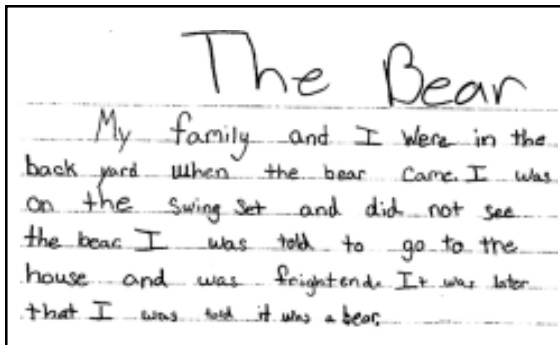 The Bear
My family and I were in the
back yard when the bear came. I was
on the swing set and did not see
the bear. I was told to go to the
house and was frightend. It was later
that I was told it was a bear.